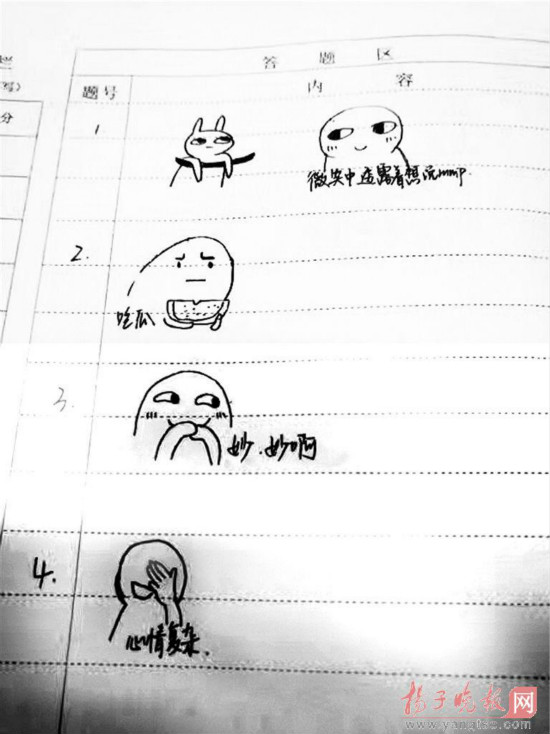 答 题 区
题号
内 容
写)
分
1
微笑中透露着想说mmp.
2.
吃瓜
3.
妙.妙啊
4.
心情复杂.
扬子晚报网
www.yangtse.com